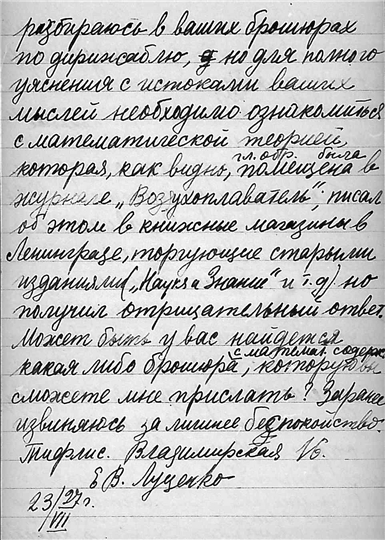 разбираюсь в ваших брошюрах
по дирижаблю, но для полного
уяснения с истоками ваших
мыслей необходимо ознакомиться
с математической теорией,
которая, как видно, гл. обр. была помещена в
журнале „Воздухоплаватель“, писал
об этом в книжные магазины в
Ленинграде, торгующие старыми
изданиями („Наука и Знание“ и т.д) но
получил отрицательный ответ.
Может быть у вас найдется
какая либо брошюра с математ. содерж., которую вы
сможете мне прислать? Заранее
извиняюсь за лишнее беспокойство.
Тифлис. Владимирская 16.
Е В. Луценко
23/VII 27 г.